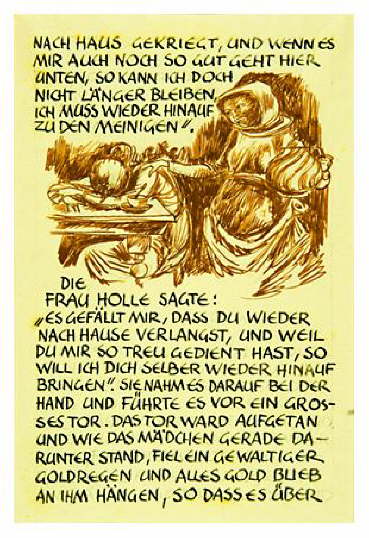 NACH HAUS GEKRIEGT, UND WENN ES
MIR AUCH NOCH SO GUT GEHT HIER
UNTEN, SO KANN ICH DOCH
NICHT LÄNGER BLEIBEN,
ICH MUSS WIEDER HINAUF
ZU DEN MEINIGEN".
DIE
FRAU HOLLE SAGTE:
„ES GEFÄLLT MIR, DASS DU WIEDER
NACH HAUSE VERLANGST, UND WEIL
DU MIR SO TREU GEDIENT HAST, SO
WILL ICH DICH SELBER WIEDER HINAUF
BRINGEN". SIE NAHM ES DARAUF BEI DER
HAND UND FÜHRTE ES VOR EIN GROS-
SES TOR. DAS TOR WARD AUFGETAN
UND WIE DAS MÄDCHEN GERADE DA-
RUNTER STAND, FIEL EIN GEWALTIGER
GOLDREGEN UND ALLES GOLD BLIEB
AN IHM HÄNGEN, SO DASS ES ÜBER